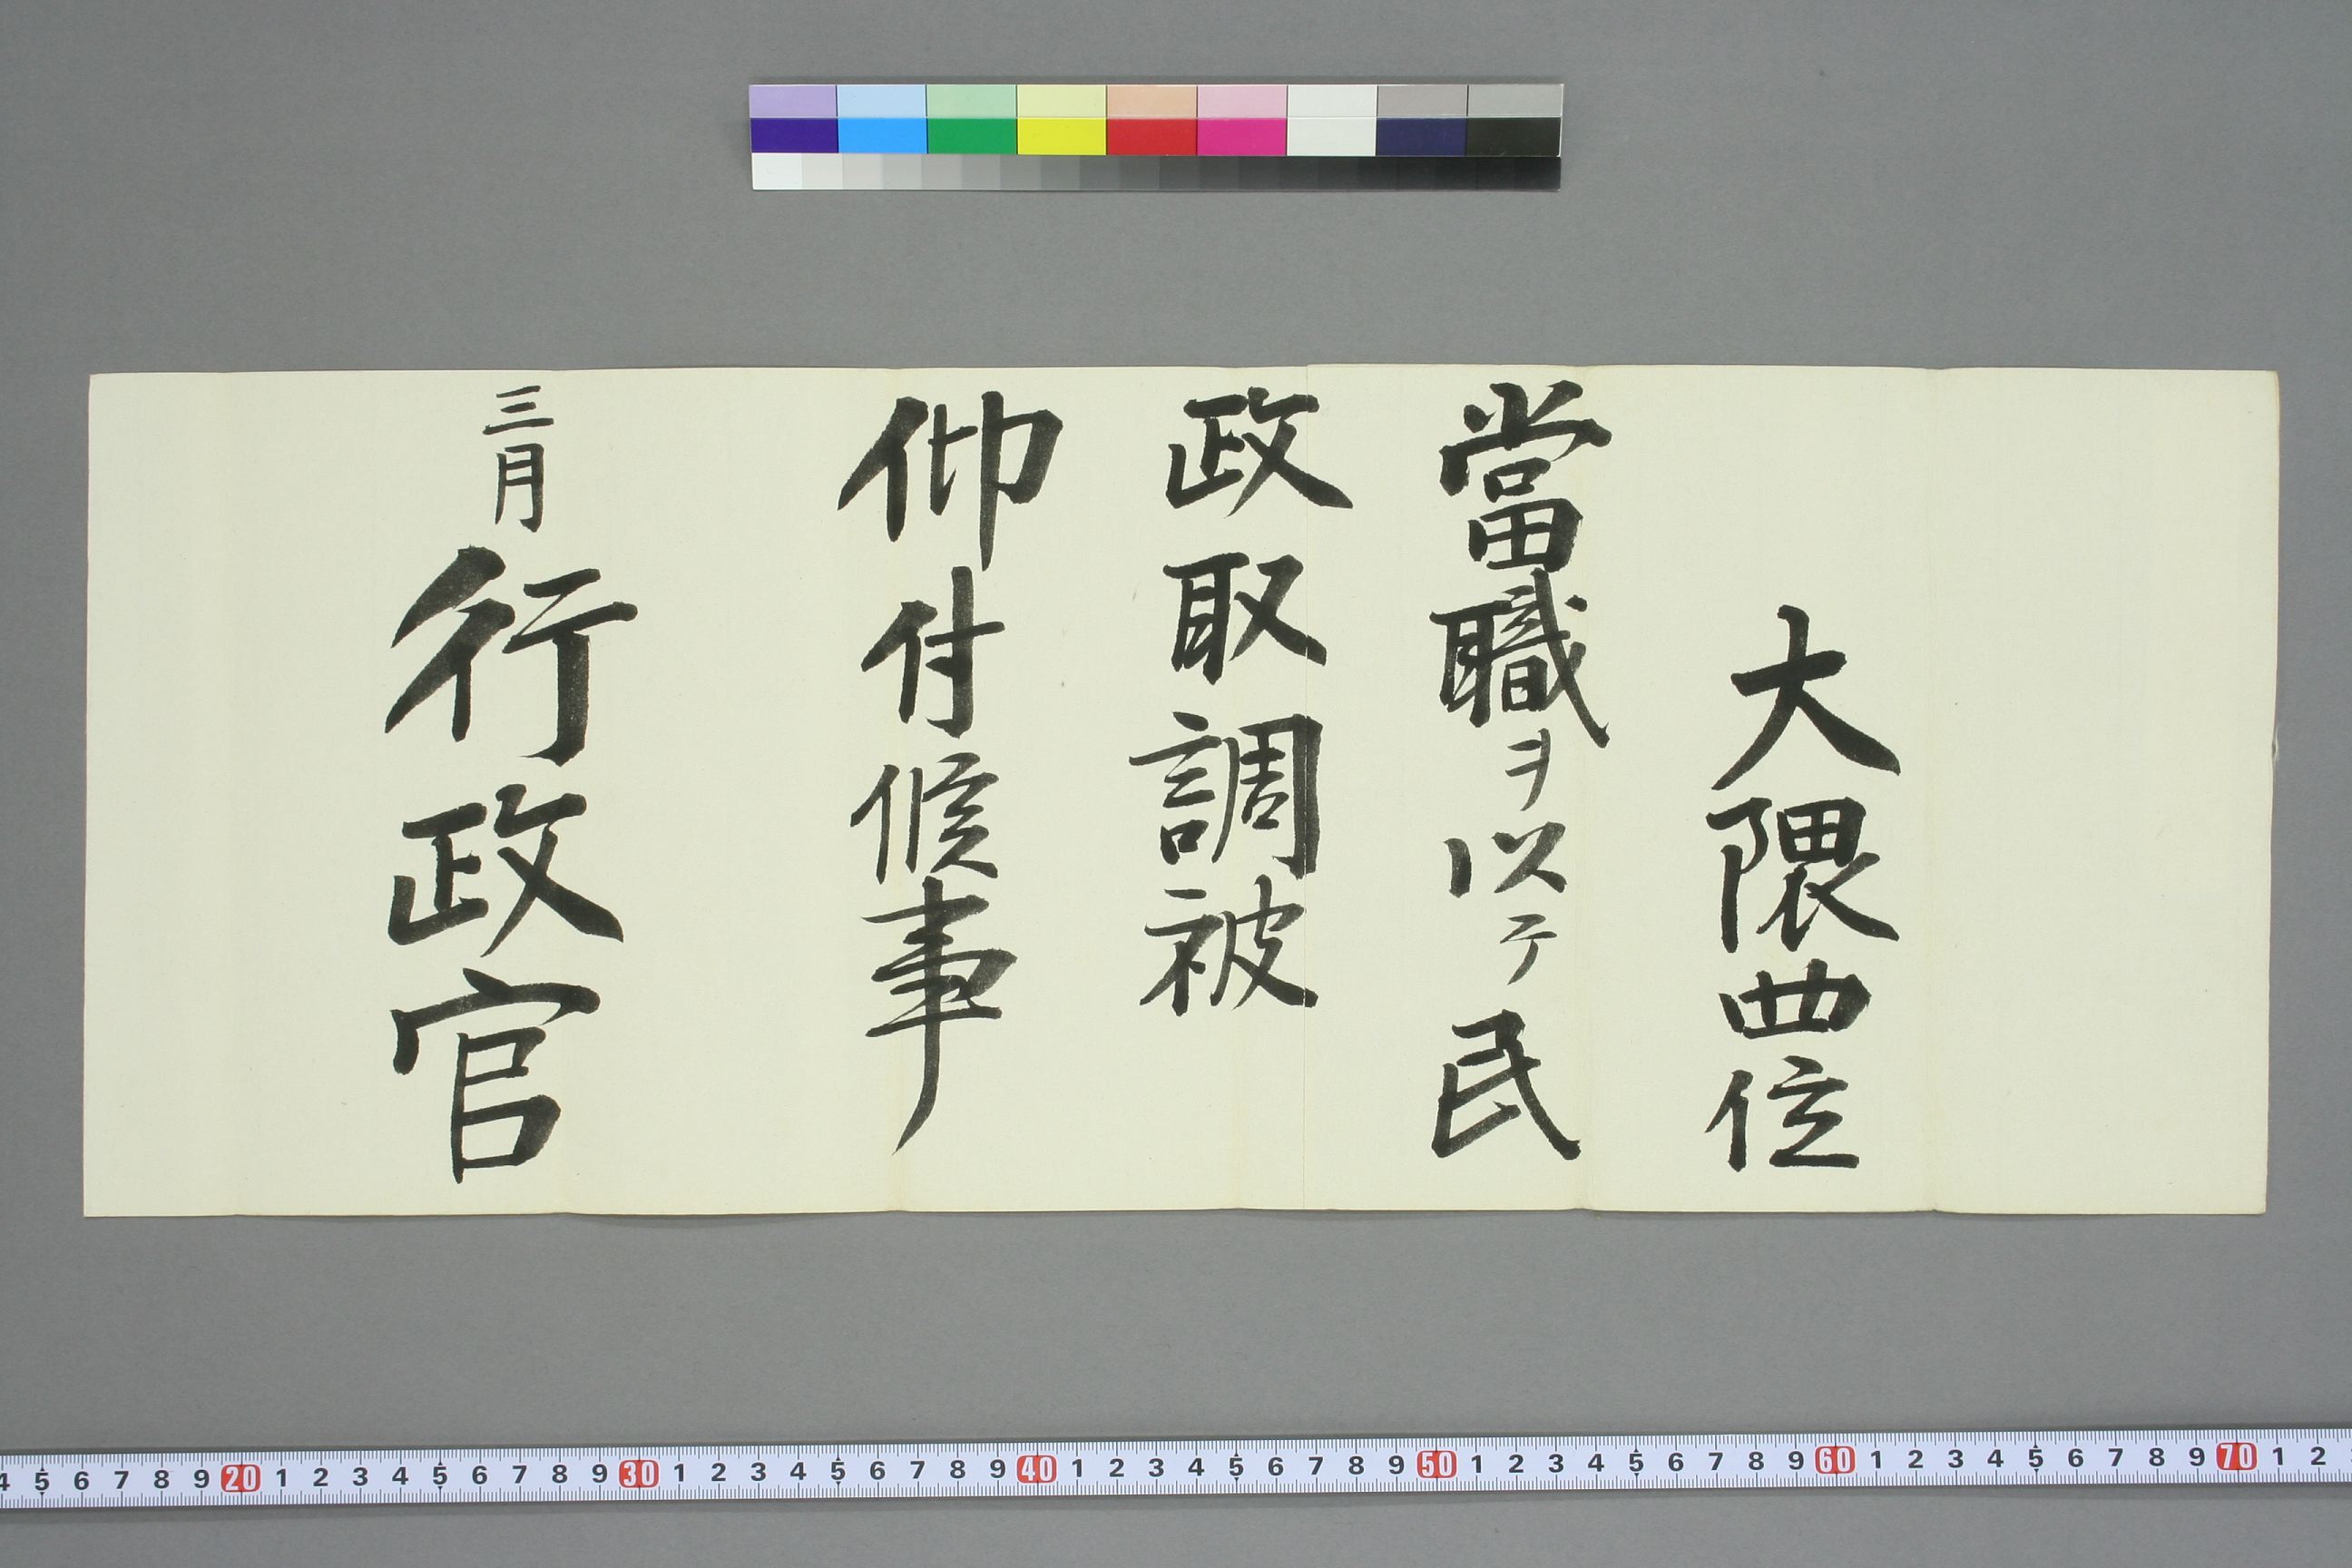 大隈四位
當職ヲ以テ民
政取調被
仰付候事
三月
行政官
4 5 6 7 8 9 20 1 2 3 4 5 6 7 8 9 30 1 2 3 4 5 6 7 8 9 40 1 2 3 4 5 6 7 8 9 50 1 2 3 4 5 6 7 8 9 60 1 2 3 4 5 6 7 8 9 70 1 2